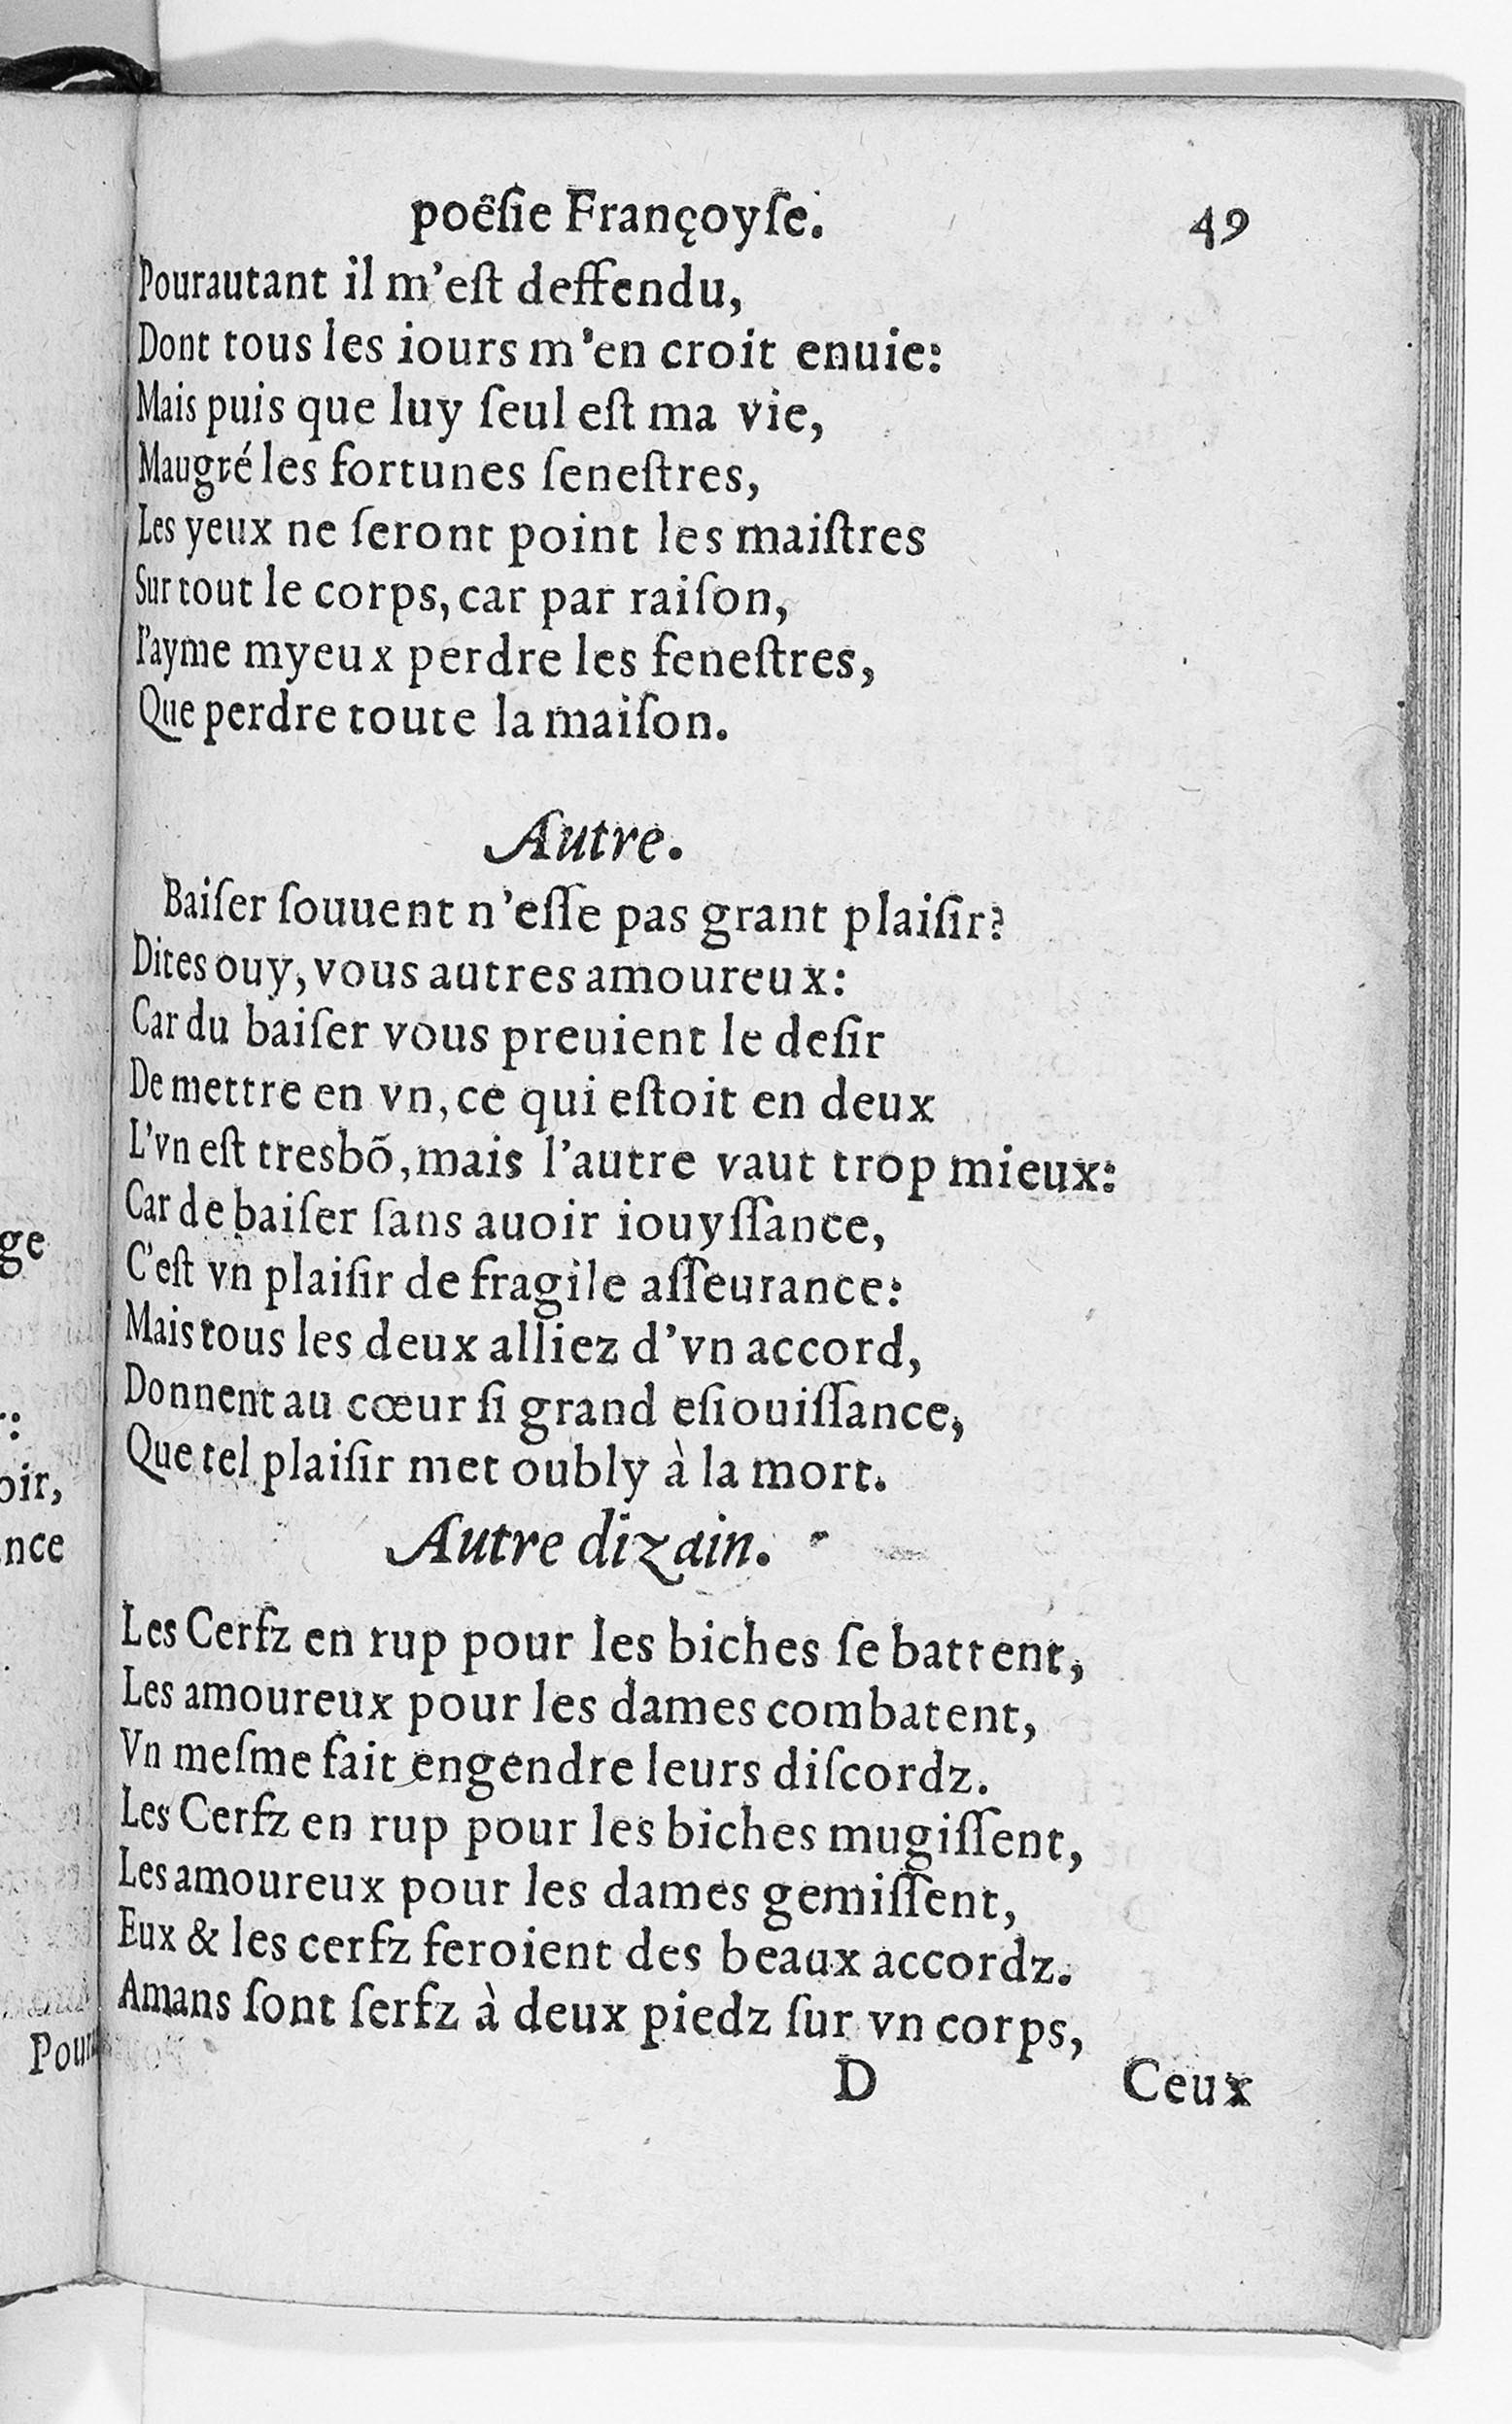 poëſie Françoyſe. 49
Pourautant il m'eſt deffendu,
Dont tous les iours m'en croit enuie:
Mais puis que luy ſeul eſt ma vie,
Maugré les fortunes ſeneſtres,
Les yeux ne ſeront point les maiſtres
Sur tout le corps, car par raiſon,
I'ayme myeux perdre les feneſtres,
Que perdre toute la maiſon.
Autre.
Baiſer ſouuent n'eſſe pas grant plaiſir?
Dites ouy, vous autres amoureux:
Car du baiſer vous preuient le deſir
De mettre en vn, ce qui eſtoit en deux
L'vn eſt tresbõ, mais l'autre vaut trop mieux:
Car de baiſer ſans auoir iouyſſance,
C'eſt vn plaiſir de fragile aſſeurance:
Mais tous les deux alliez d'vn accord,
Donnent au cœur ſi grand eſiouiſſance,
Que tel plaiſir met oubly à la mort.
Autre dizain.
Les Cerfz en rup pour les biches ſe battent,
Les amoureux pour les dames combatent,
Vn meſme fait engendre leurs diſcordz.
Les Cerfz en rup pour les biches mugiſſent,
Les amoureux pour les dames gemiſſent,
Eux & les cerfz feroient des beaux accordz.
Amans ſont ſerfz à deux piedz ſur vn corps,
D Ceux
ge
:
oir,
nce
Pour